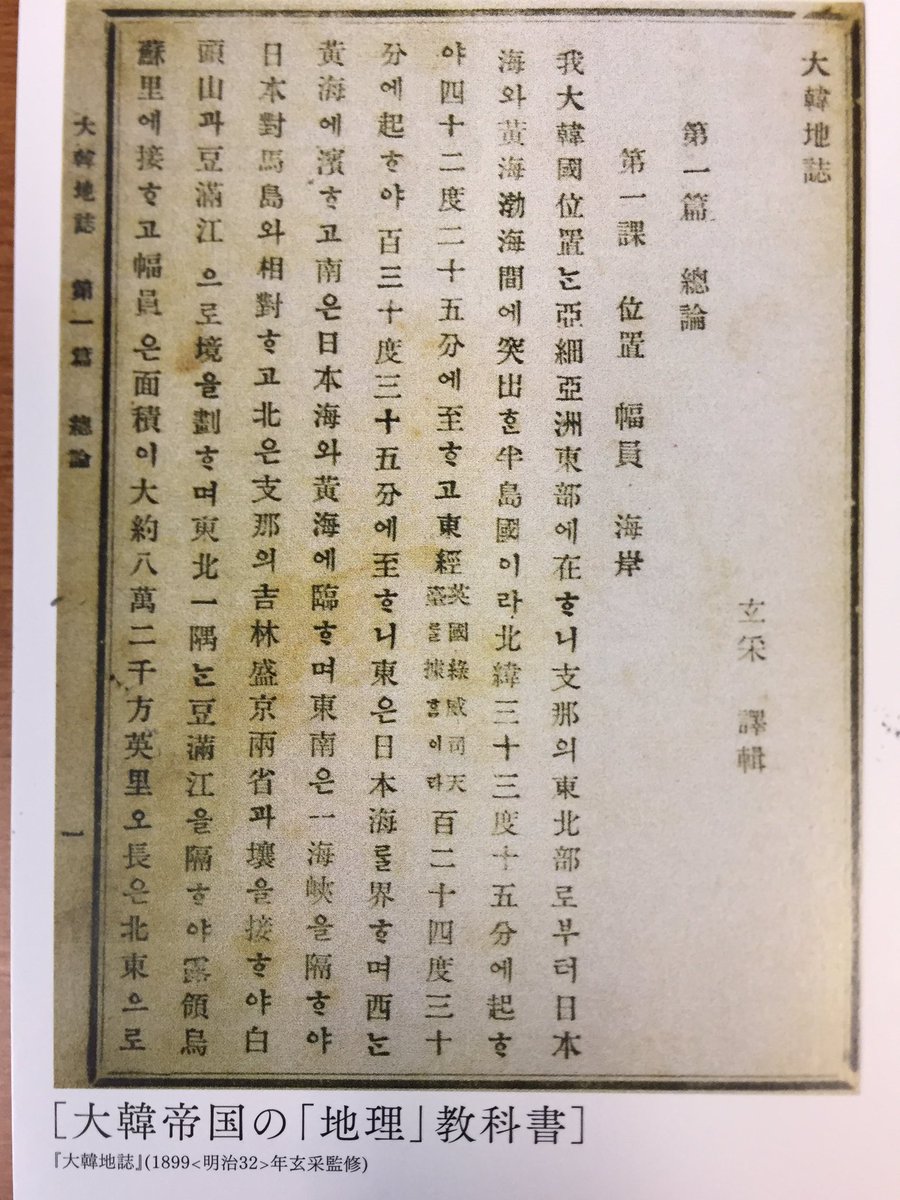 大韓地誌
玄采 譯輯
第一篇 總論
第一課 位置 幅員 海岸
我大韓國位置는亞細亞洲東部에在ᄒᆞ니支那의東北部로부터日本
海와黃海渤海間에突出ᄒᆞᆫ半島國이라北緯三十三度十五分에起ᄒᆞ
야四十二度二十五分에至ᄒᆞ고東經英國綠威司天臺를據홈이라百二十四度三十
分에起ᄒᆞ야百三十度三十五分에至ᄒᆞ니東은日本海를界ᄒᆞ며西는
黃海에濱ᄒᆞ고南은日本海와黃海에臨ᄒᆞ며東南은一海峽을隔ᄒᆞ야
日本對馬島와相對ᄒᆞ고北은支那의吉林盛京兩省과壤을接ᄒᆞ야白
頭山과豆滿江으로境을劃ᄒᆞ며東北一隅는豆滿江을隔ᄒᆞ야露領烏
蘇里에接ᄒᆞ고幅員은面積이大約八萬二千方英里오長은北東으로
大韓地誌 第一篇 總論 一
[大韓帝国の「地理」教科書]
『大韓地誌』(1899<明治32>年玄采監修)